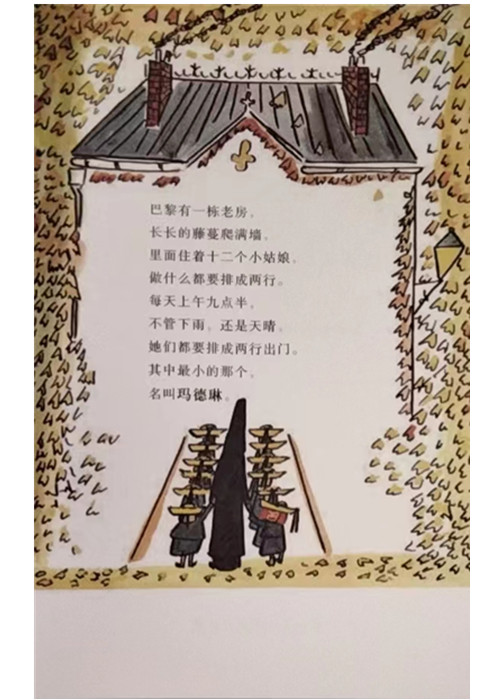 巴黎有一栋老房，
长长的藤蔓爬满墙。
里面住着十二个小姑娘，
做什么都要排成两行。
每天上午九点半，
不管下雨，还是天晴，
她们都要排成两行出门。
其中最小的那个，
名叫玛德琳。